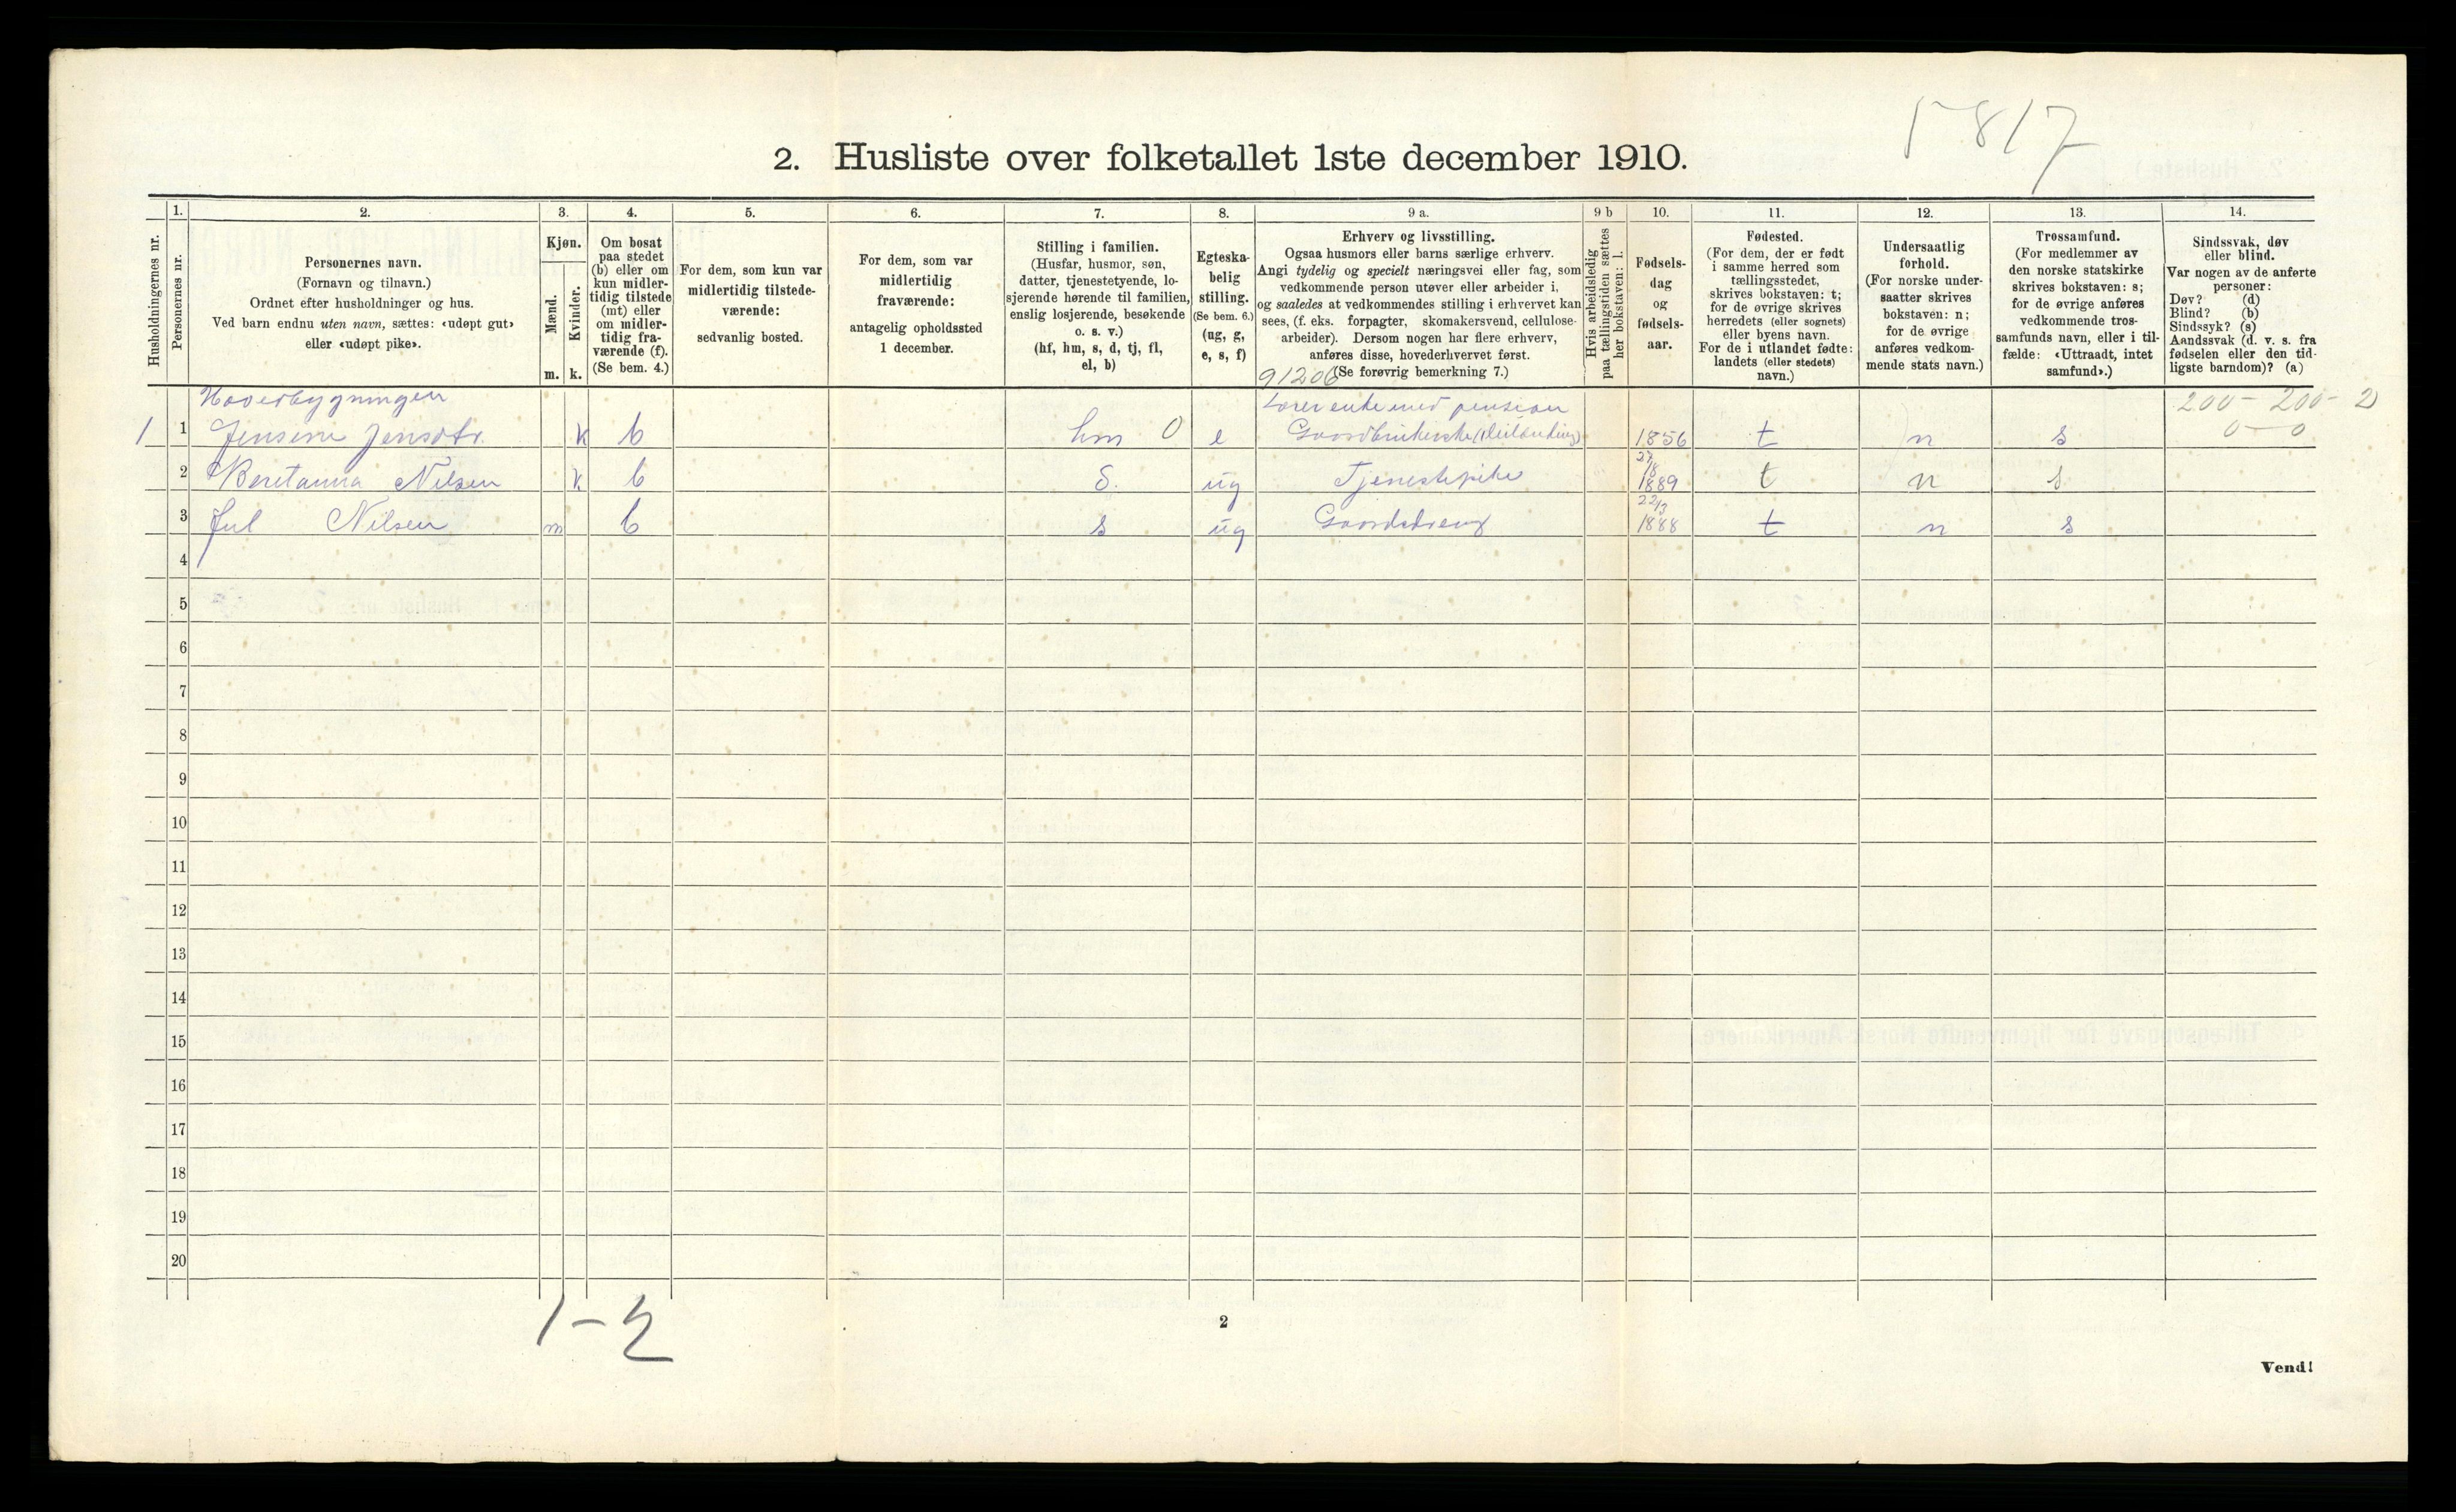 5817
2. Husliste over folketallet 1ste december 1910.
Husholdningernes nr.
1.
Personernes nr.
2.
Personernes navn.
(Fornavn og tilnavn.)
Ordnet efter husholdninger og hus.
Ved barn endnu uten navn, sættes: «udøpt gut»
eller «udøpt pike».
3.
Kjøn.
Mænd.
Kvinder.
m. k.
4.
Om bosat
paa stedet
(b) eller om
kun midler-
tidig tilstede
(mt) eller
om midler-
tidig fra-
værende (f).
(Se bem. 4.)
5.
For dem, som kun var
midlertidig tilstede-
værende:
sedvanlig bosted.
6.
For dem, som var
midlertidig
fraværende:
antagelig opholdssted
1 december.
7.
Stilling i familien.
(Husfar, husmor, søn,
datter, tjenestetyende, lo-
sjerende hørende til familien,
enslig losjerende, besøkende
o. s. v.)
(hf, hm, s, d, tj, fl,
el, b)
8.
Egteska-
belig
stilling.
(Se bem. 6.)
(ug, g,
e, s, f)
9 a.
Erhverv og livsstilling.
Ogsaa husmors eller barns særlige erhverv.
Angi tydelig og specielt næringsvei eller fag, som
vedkommende person utøver eller arbeider i,
og saaledes at vedkommendes stilling i erhvervet kan
sees, (f. eks. forpagter, skomakersvend, cellulose-
arbeider). Dersom nogen har flere erhverv,
anføres disse, hovederhvervet først.
(Se forøvrig bemerkning 7.)
91206
9 b
Hvis arbeidsledig
paa tællingstiden sættes
her bokstaven: l.
10.
Fødsels-
dag
og
fødsels-
aar.
11.
Fødested.
(For dem, der er født
i samme herred som
tællingsstedet,
skrives bokstaven: t;
for de øvrige skrives
herredets (eller sognets)
eller byens navn.
For de i utlandet fødte:
landets (eller stedets)
navn.)
12.
Undersaatlig
forhold.
(For norske under-
saatter skrives
bokstaven: n;
for de øvrige
anføres vedkom-
mende stats navn.)
13.
Trossamfund.
(For medlemmer av
den norske statskirke
skrives bokstaven: s;
for de øvrige anføres
vedkommende tros-
samfunds navn, eller i til-
fælde: «Uttraadt, intet
samfund».)
14.
Sindssvak, døv
eller blind.
Var nogen av de anførte
personer:
Døv? (d)
Blind? (b)
Sindssyk? (s)
Aandssvak (d. v. s. fra
fødselen eller den tid-
ligste barndom)? (a)
Hovedbygningen
Lærerenke med pension 200 - 200 - 2
1 1 Jensine Jensdtr. k b hm 0 e Gaardbrukerske 1856 t n s 0 - 0
2 Beretanna Nilsen k b S. ug Tjenestepike 27/8 1889 t n s
3 Jul Nilsen m b s ug Gaardsdreng 22/3 1888 t n s
4
5
6
7
8
9
10
11
12
13
14
15
16
17
18
19
20
1 - 2
2
Vend!